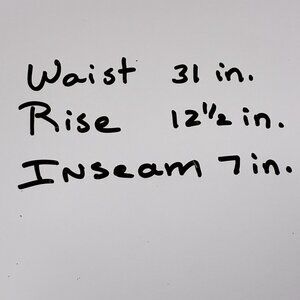 Waist 31 in.
Rise 12 1/2 in.
Inseam 7 in.